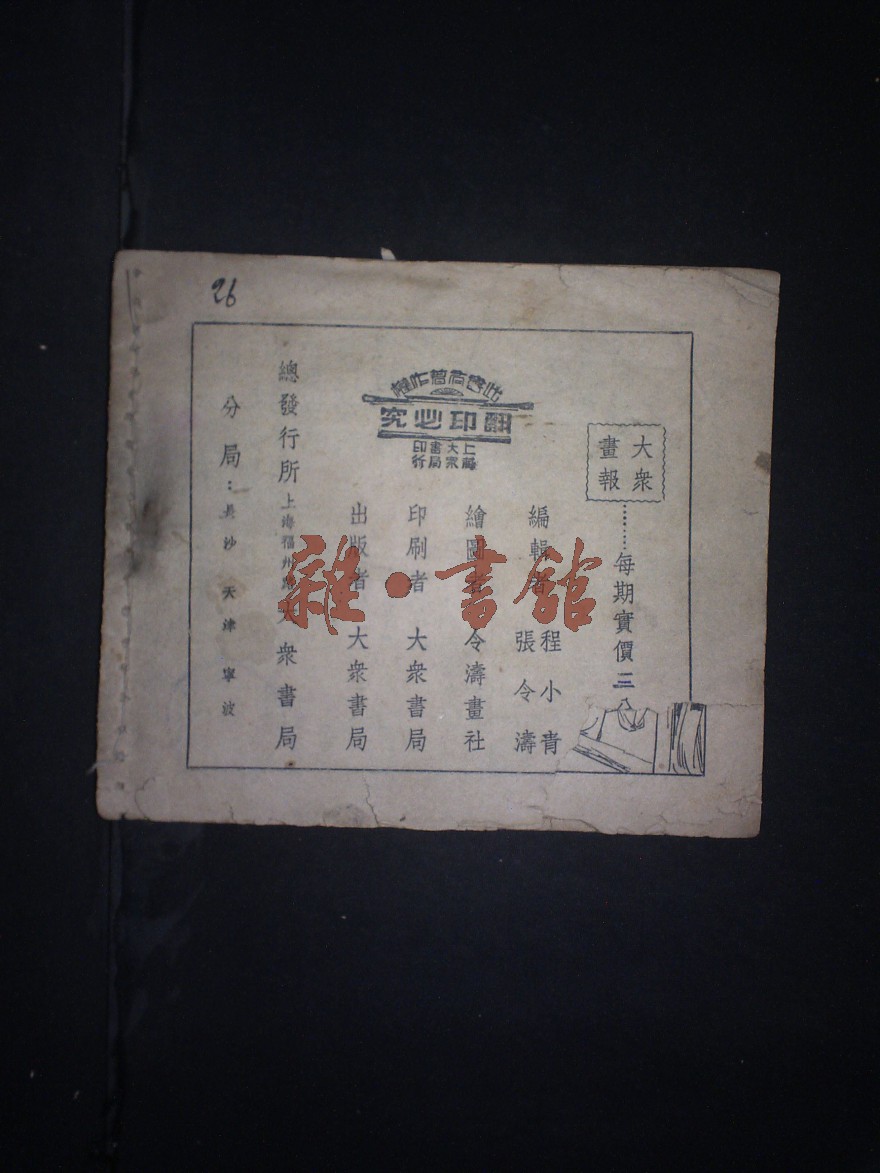 26
大眾
畫報
………每期實價三
編輯者 程小青
張令濤
繪圖者 令濤畫社
印刷者 大眾書局
出版者 大眾書局
此書有著作權
翻印必究
上海
大眾
書局
印行
總發行所 上海福州路 大眾書局
分局：長沙 天津 寧波
雜·書館